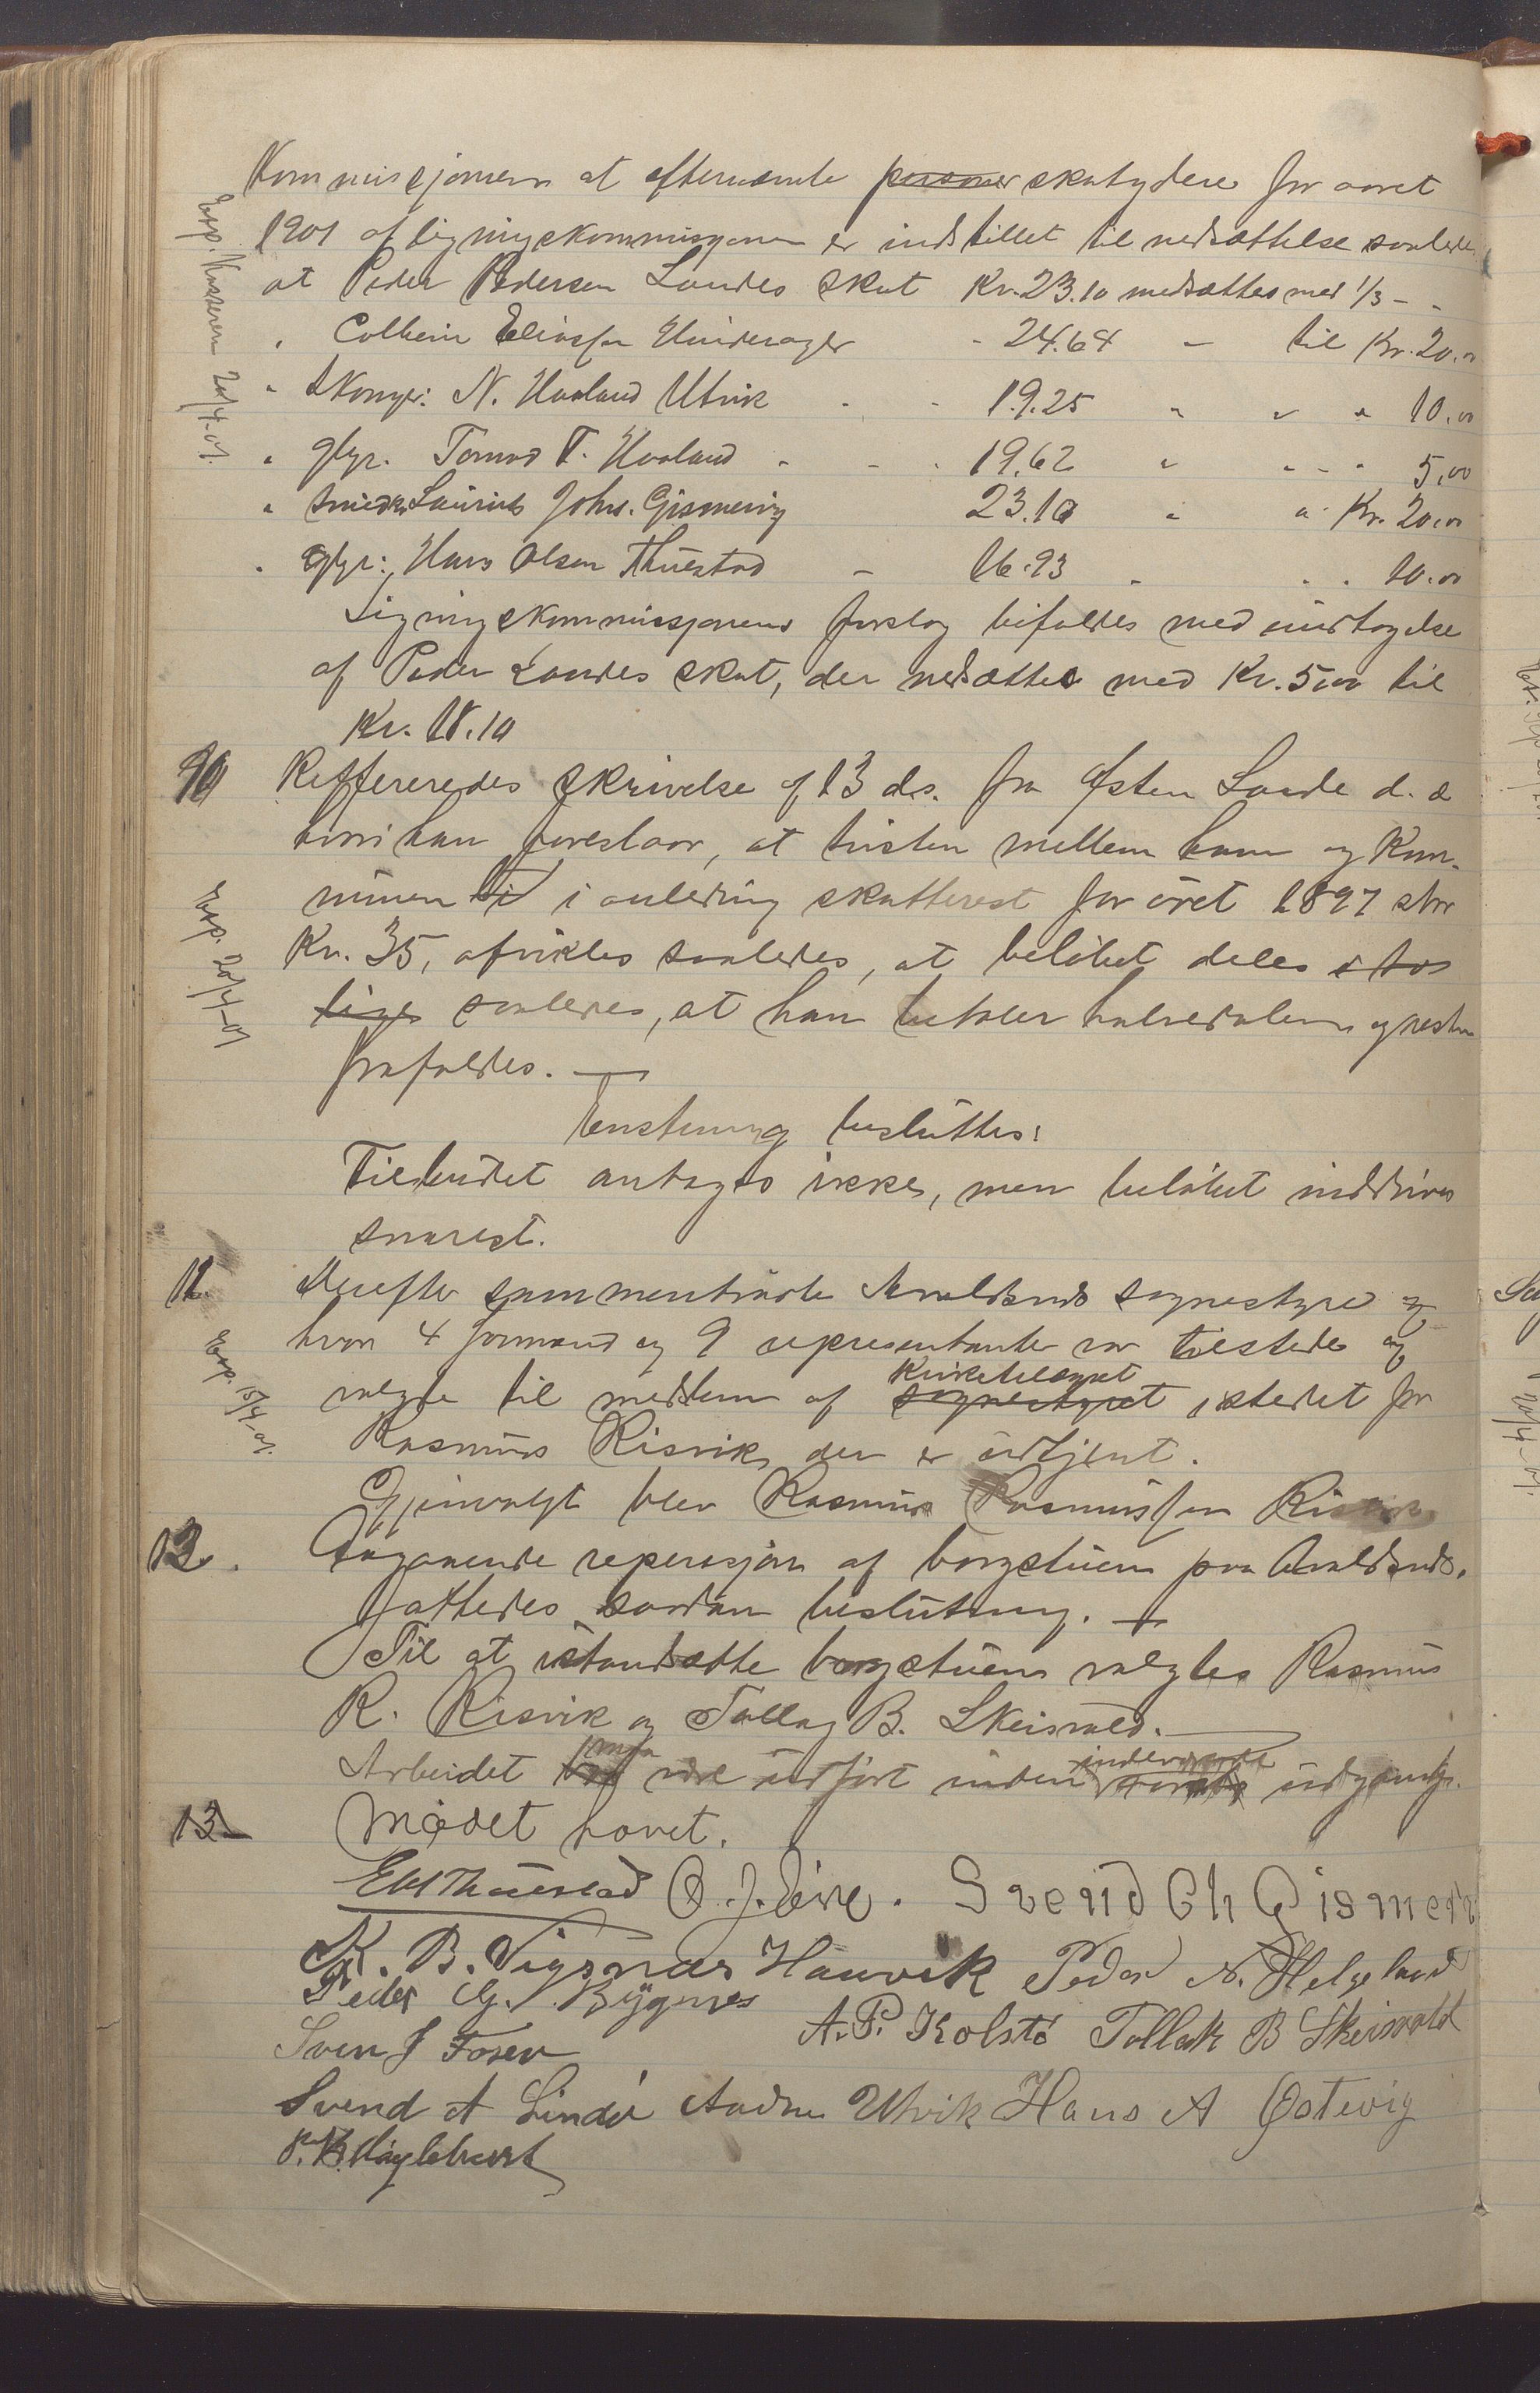 Kommissjonen at efternævnte personer skatydere for aaret
1901 af ligningskommissjonen er indstillet til nedsættelse saaledes
at Peder Pedersen Landes skat Kr. 23.10 nedsættes med 1/3 - -
" Eliassen - 24.64 - til Kr. 20.00
" N. Haaland Utvik - - 19.25 " " " 10.00
" gbr. Tormod T. Haaland - - - 19.62 " " - - 5,00
" smed Laurits Johs. Gismervig 23.10 " " Kr. 20.00
" gbr: Hans Olsen Thuestad - 16.93 " . . 10.00
Ligningskommissjonens forslag bifaldes med undtagelse
af Peder Landes skat, der nedsættes med Kr. 5,00 til
Kr. 18.10
Exp. Kasseren 20/4-01.
10 Reffereredes skrivelse af 13 ds. fra Østen Lande d. æ
hvori han foreslaar, at tvisten mellem ham og Kom-
munen i anledning skatterest for året 1897 stor
Kr. 35, afvikles saaledes, at beløbet deles i to
lige saaledes, at han betaler halvedalen og resten
frafaldes. —
Exp. 20/4-01
Enstemmig besluttes:
Tilbudet antages ikke, men beløbet inddrives
snarest.
11. Derefter sammentraadte Avaldsnes sognestyre og
hvor 4 formænd og 9 representanter var tilstede og
Kirketilsynet
valgte til medlem af sognestyret istedet for
Rasmus Risvik, der er udtjent.
Exp. 15/4-01.
Gjenvalgt blev Rasmus Rasmussen Risvik
12. Angaaende reperasjon af borgstuen paa Avaldsnes.
fattedes saadan beslutning. —
Til at istandsætte borgstuen valgtes Rasmus
R. Risvik og Tollag B. Skeisvold. —
maa inderværende
Arbeidet være udført inden udgang.
13. Mødet hævet.
E H Thuestad O. J. Eive. Svend Ch Gismervig
K. B. Vigsnæs Hauvik Peder N. Helgeland
Peder G. Bygnes
A. P. Kolstø Tollak B Skeisvold
Sven J Fosen
Svend A Lindø Andrew Utvik Hans A Østevig